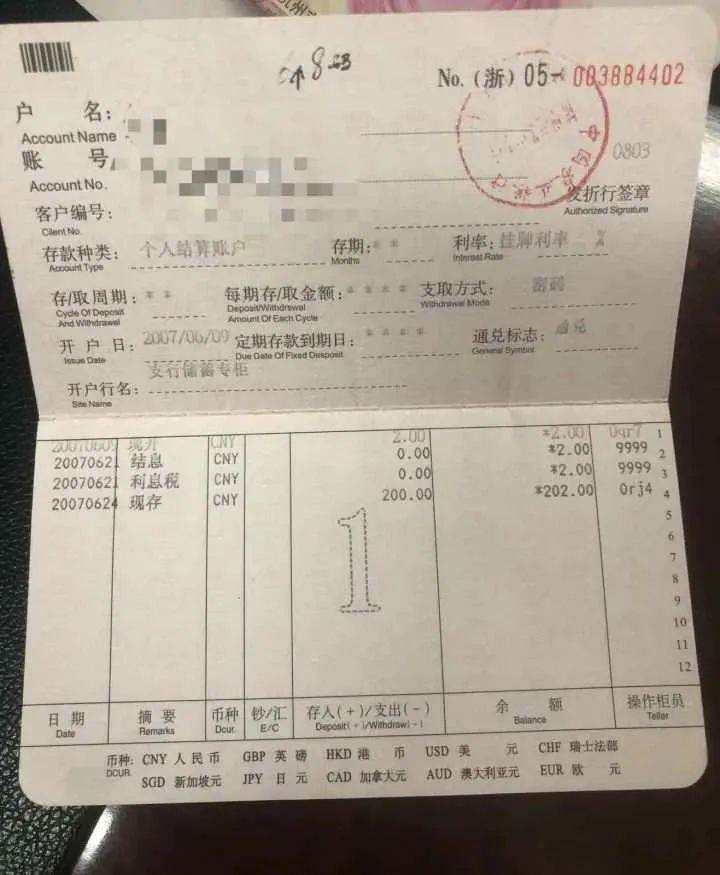 No.(浙) 05- 003884402
户 名:
Account Name
账 号
Account No.
0803
客户编号:
Client No.
发折行签章
Authorized Signature
存款种类: 个人结算账户 存期: * * 利率: 挂牌利率 %
Account Type Months Interest Rate
存/取周期: * * 每期存/取金额: * * * * 支取方式: 密码
Cycle Of Deposit And Withdrawal Deposit/Withdrawal Amount Of Each Cycle Withdrawal Mode
开 户 日: 2007/06/09 定期存款到期日: * * * * 通兑标志: 通兑
Issue Date Due Date Of Fixed Desposit General Symbol
开户行名: 支行储蓄专柜
Site Name
20070609 现开 CNY 2.00 *2.00 0qr7 1
20070621 结息 CNY 0.00 *2.00 9999 2
20070621 利息税 CNY 0.00 *2.00 9999 3
20070624 现存 CNY 200.00 *202.00 0rj4 4
5
6
7
8
9
10
11
12
1
日 期 摘 要 币种 钞/汇 存入(+)/支出(-) 余 额 操作柜员
Date Remarks Dcur. E/C Deposit(+)/Withdraw(-) Balance Teller
币种: CNY 人 民 币 GBP 英 磅 HKD 港 币 USD 美 元 CHF 瑞士法郎
DCUR. SGD 新加坡元 JPY 日 元 CAD 加拿大元 AUD 澳大利亚元 EUR 欧 元